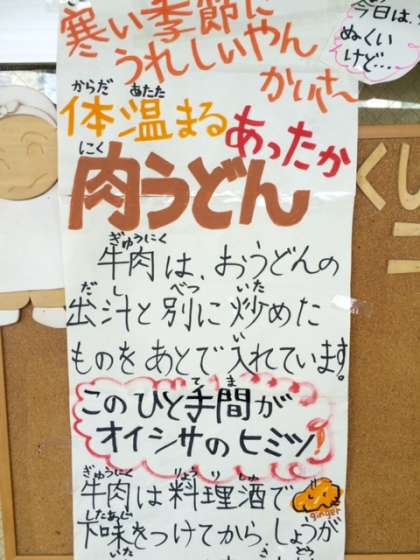 寒い季節に
うれしいやん
かいさ〜
今日は、
ぬくい
けど…
からだ あたた
体温まる
あったか
にく
肉うどん
ぎゅうにく
牛肉は、おうどんの
だし べつ いた
出汁と別に炒めた
い
ものをあとで入れています。
てま
このひと手間が
オイシサのヒミツ!
ぎゅうにく りょうりしゅ
牛肉は料理酒で
ginger
したあじ
下味をつけてから、しょうが